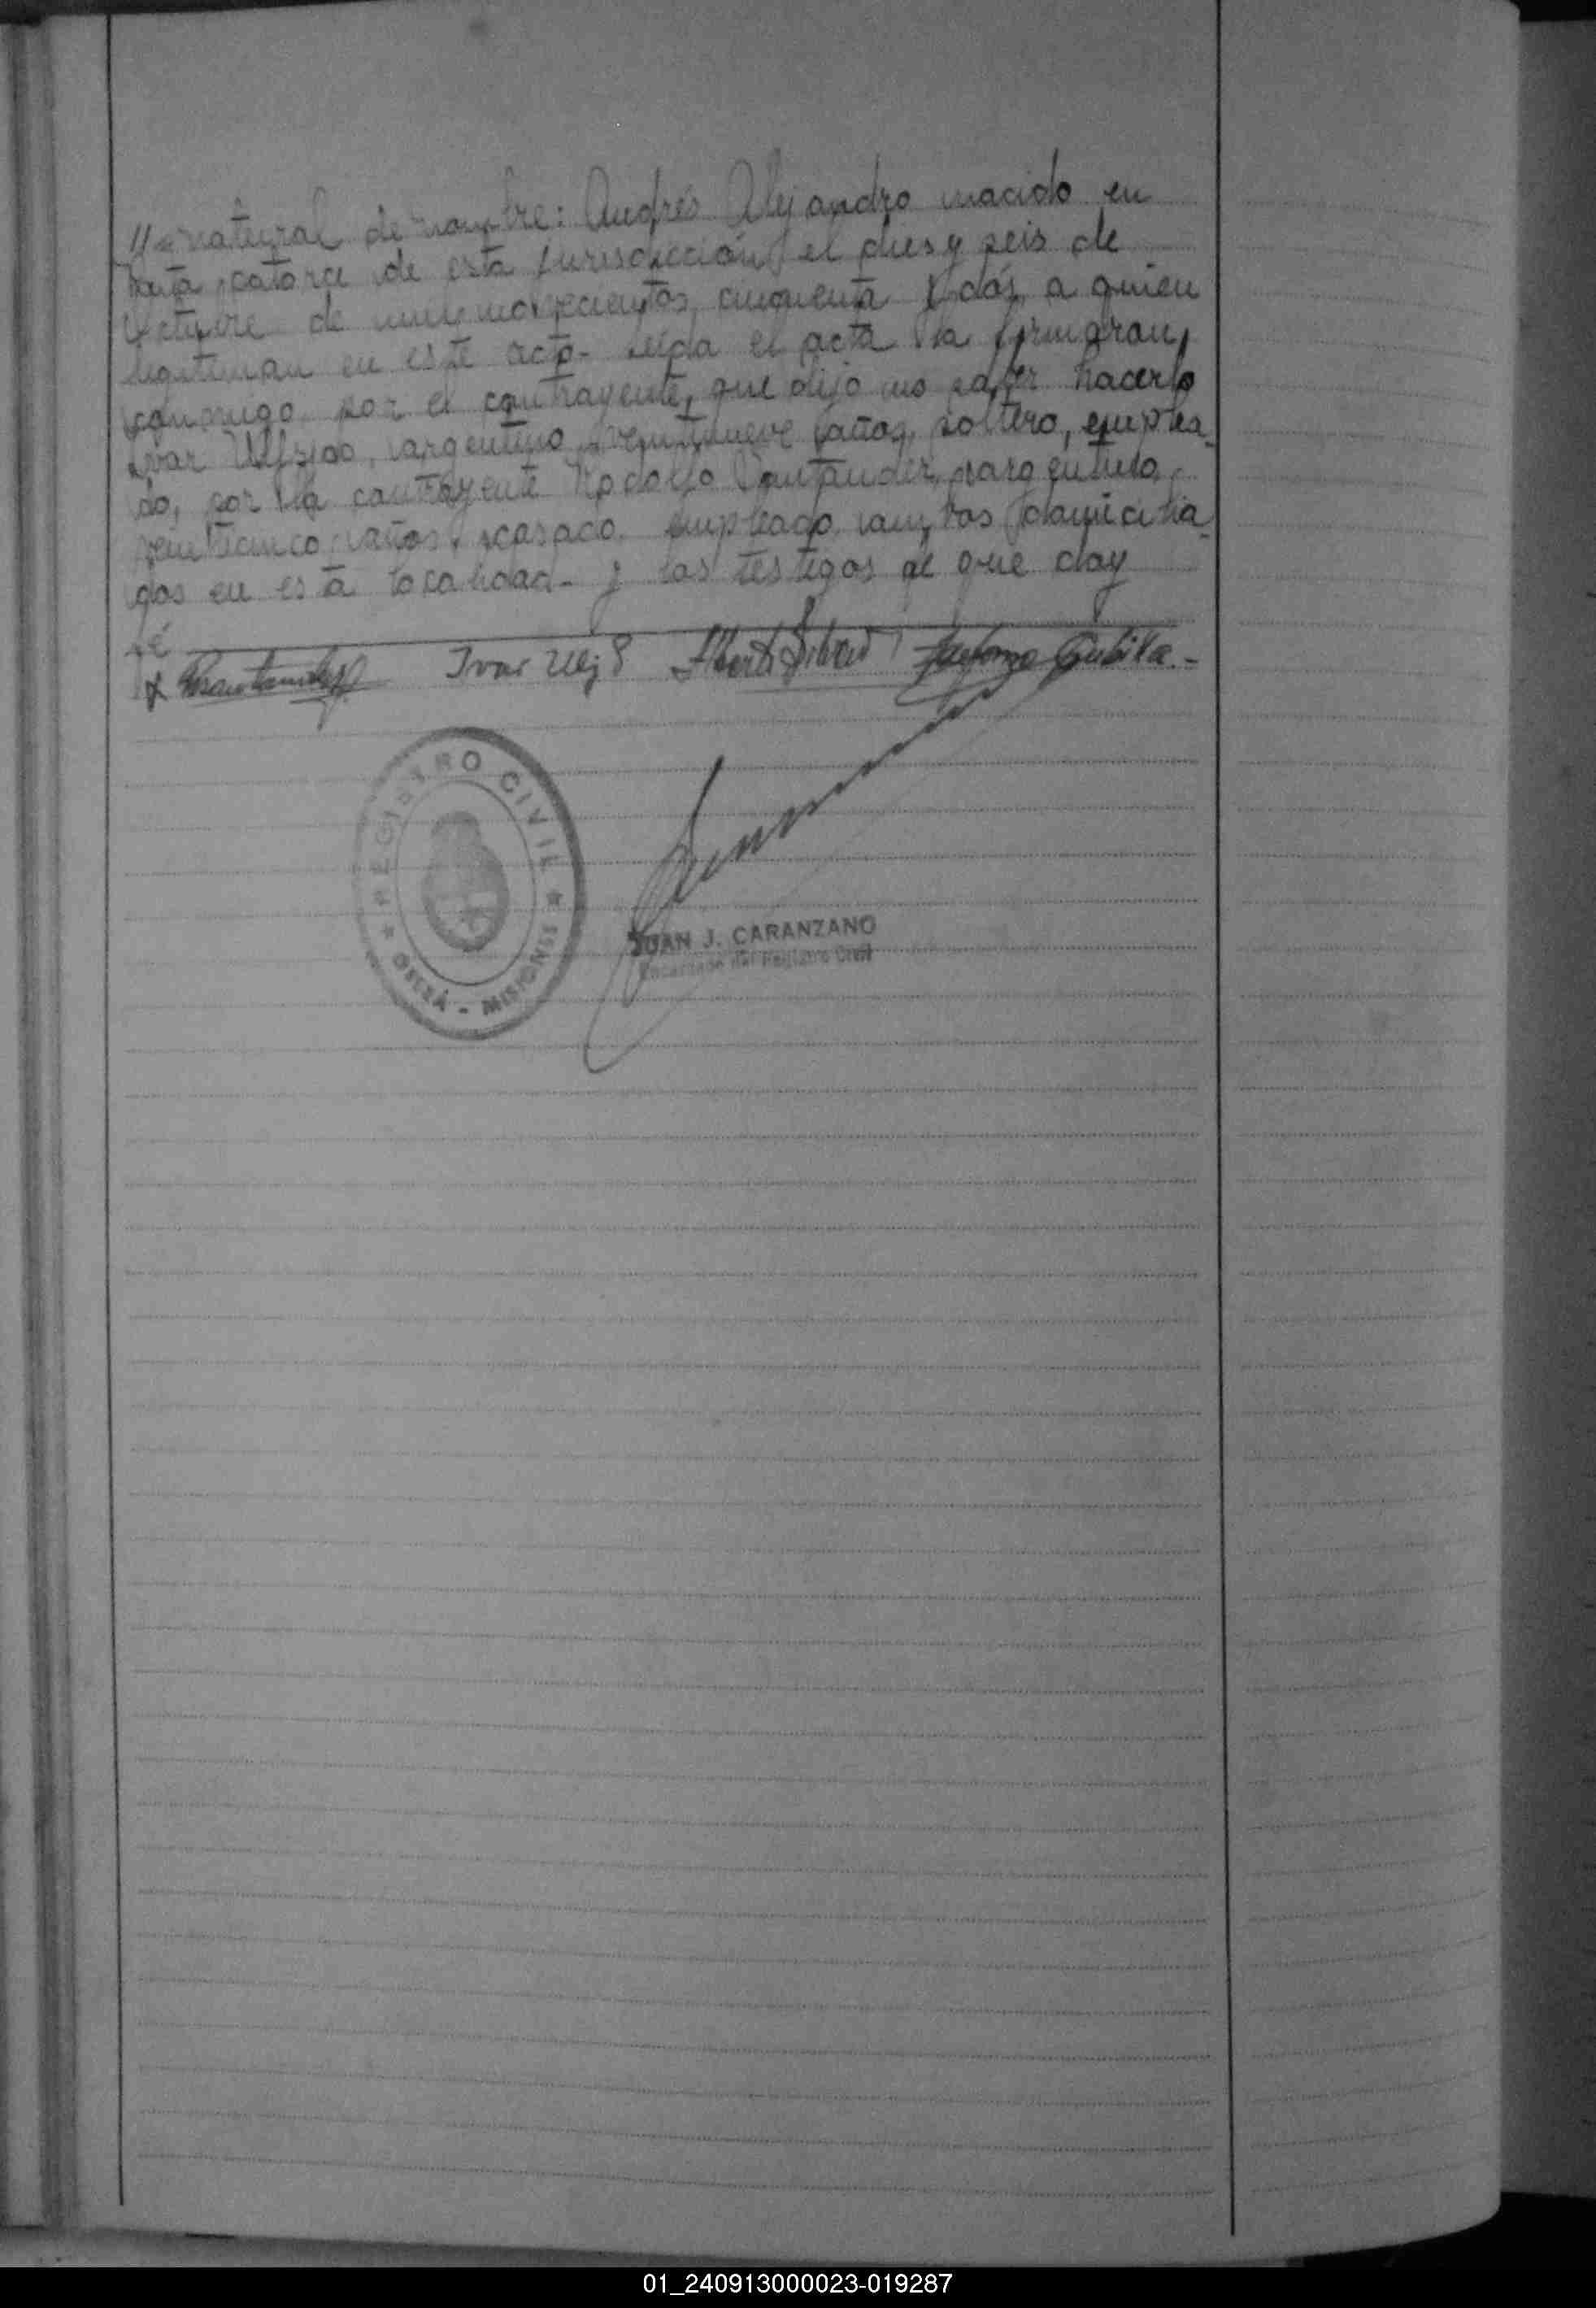 natural de nombre: Andrés Alejandro nacido en
catorce de esta jurisdicción el dies y seis de
Octubre de mil novecientos cincuenta y dós, a quien
legitiman en este acto- Leída el acta la firmaran,
conmigo por el contrayente, que dijo no saber hacerlo
argentino, veintinueve años, soltero, emplea-
do, por la contrayente Rodolfo Santander, argentino,
veinticinco años, casado, empleado, ambos domicilia-
dos en esta localidad- y los testigos de que doy
fé
REGISTRO CIVIL
OBERÁ - MISIONES
JUAN J. CARANZANO
Encargado del Registro Civil
01_240913000023-019287